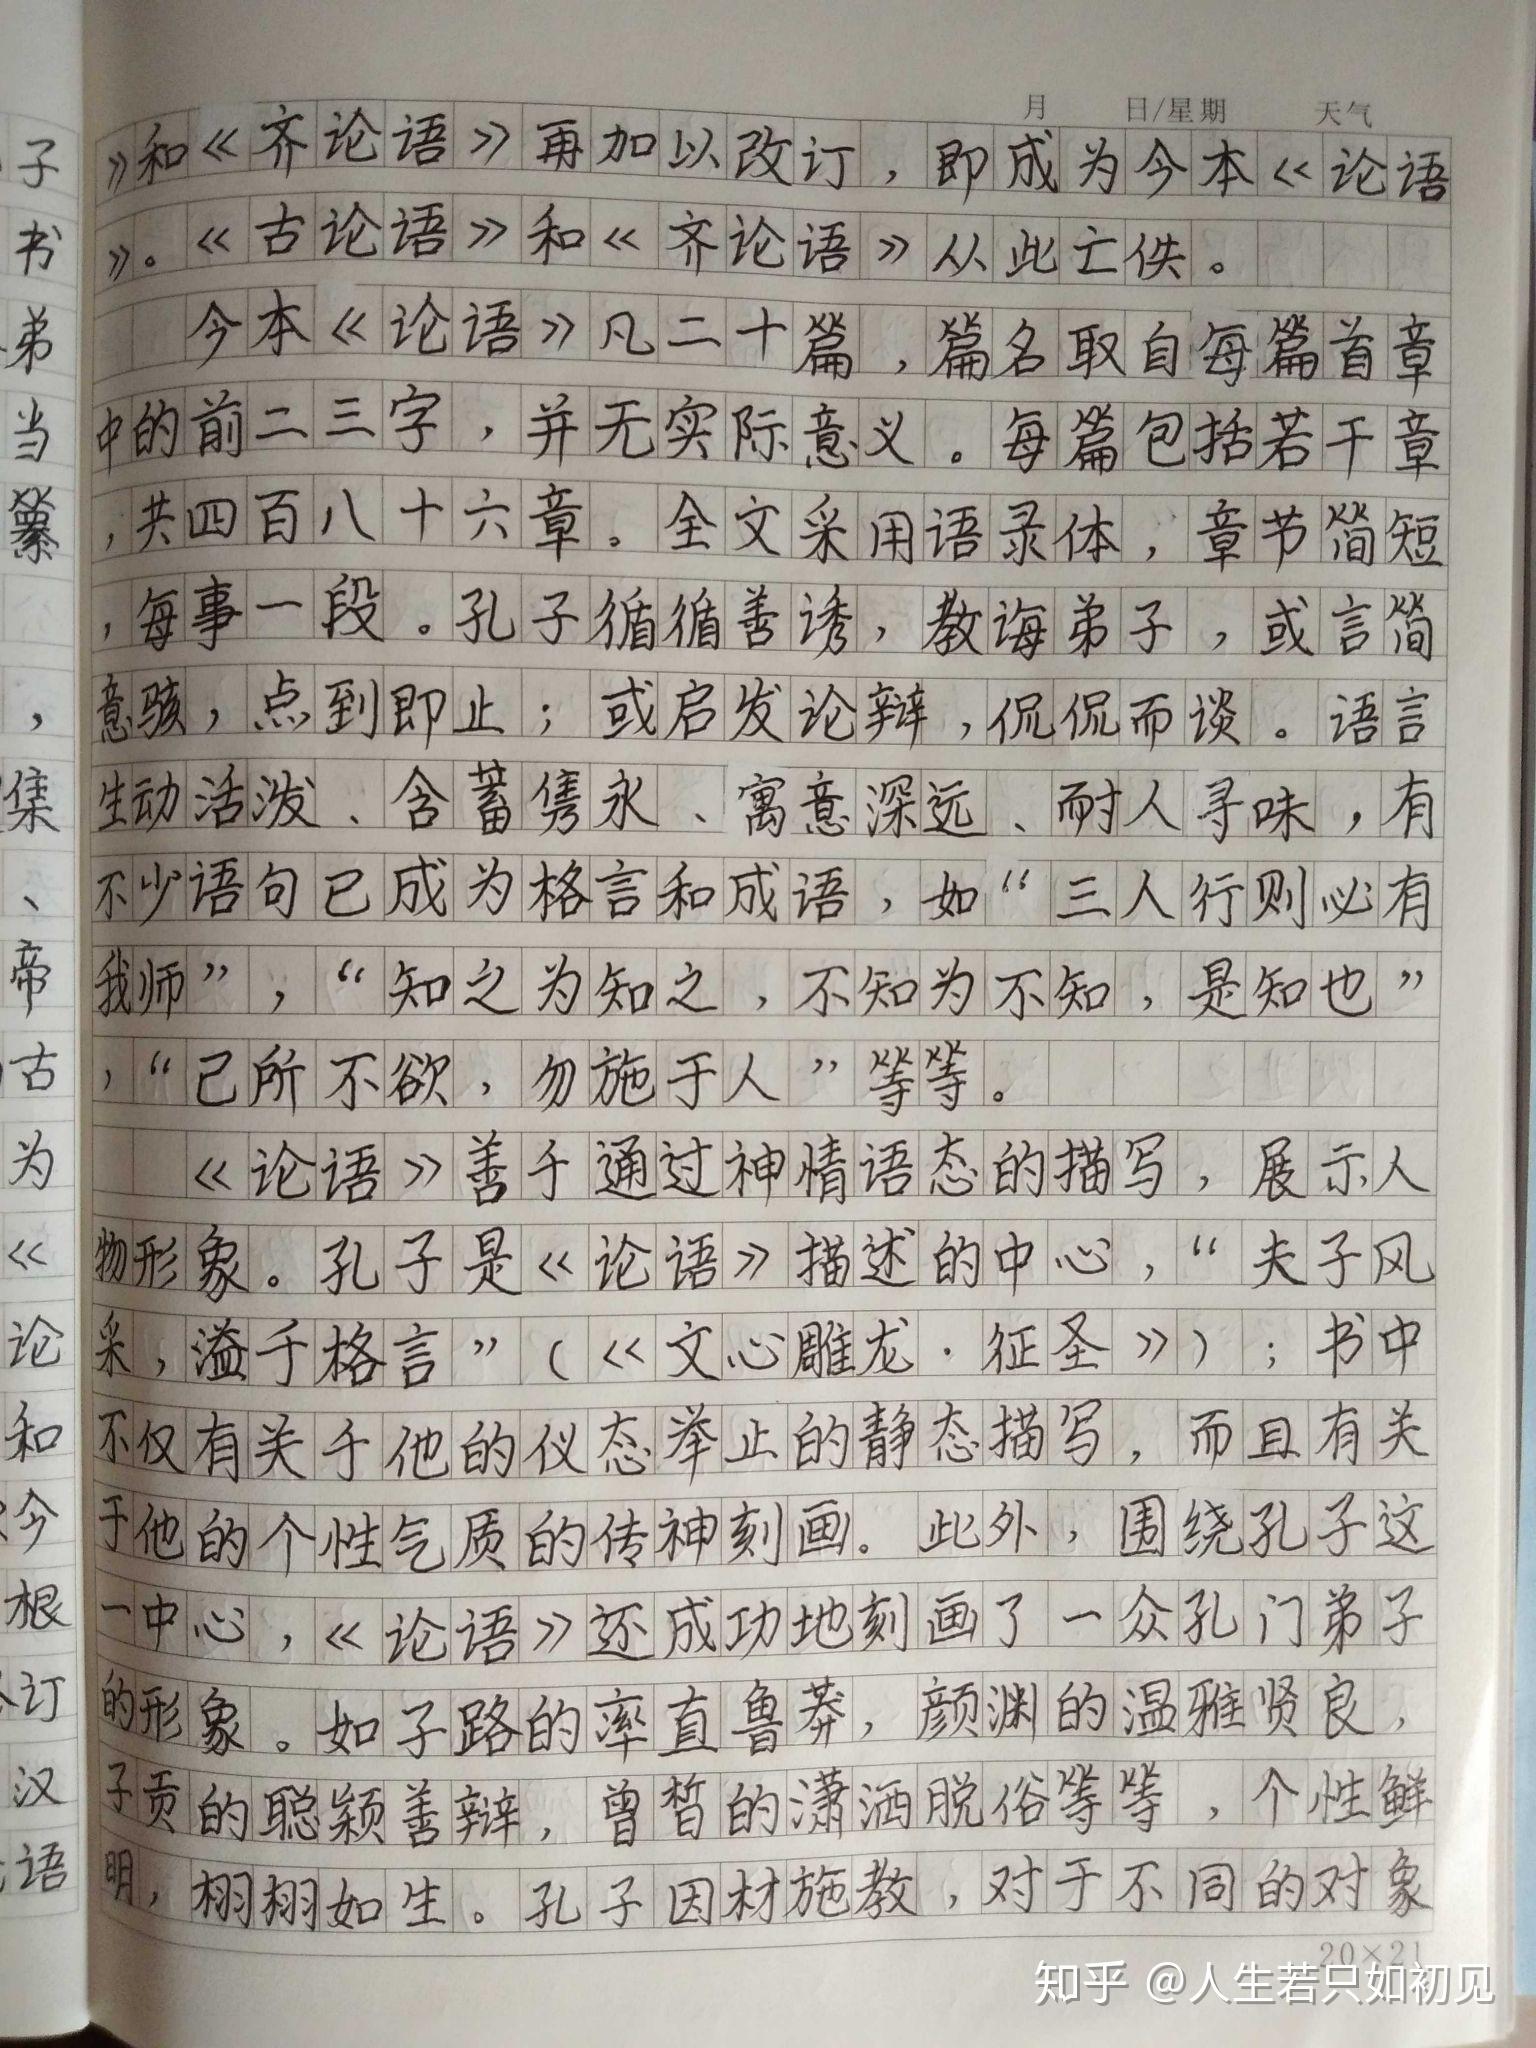 月 日/星期 天气
》和《齐论语》再加以改订，即成为今本《论语
》。《古论语》和《齐论语》从此亡佚。
今本《论语》凡二十篇，篇名取自每篇首章
中的前二三字，并无实际意义。每篇包括若干章
，共四百八十六章。全文采用语录体，章节简短
，每事一段。孔子循循善诱，教诲弟子，或言简
意骇，点到即止；或启发论辩，侃侃而谈。语言
生动活泼、含蓄隽永、寓意深远、耐人寻味，有
不少语句已成为格言和成语，如“三人行则必有
我师”，“知之为知之，不知为不知，是知也”
，“己所不欲，勿施于人”等等。
《论语》善于通过神情语态的描写，展示人
物形象。孔子是《论语》描述的中心，“夫子风
采，溢于格言”（《文心雕龙·征圣》）；书中
不仅有关于他的仪态举止的静态描写，而且有关
于他的个性气质的传神刻画。此外，围绕孔子这
一中心，《论语》还成功地刻画了一众孔门弟子
的形象。如子路的率直鲁莽，颜渊的温雅贤良，
子贡的聪颖善辩，曾皙的潇洒脱俗等等，个性鲜
明，栩栩如生。孔子因材施教，对于不同的对象
20×21
知乎 @人生若只如初见
子
书
弟
当
纂
，
集
、
帝
古
为
《
论
和
今
根
订
汉
语